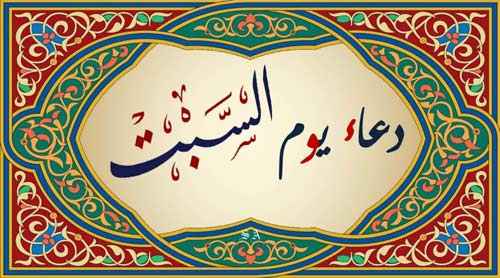 دعاء يوم السَّبت